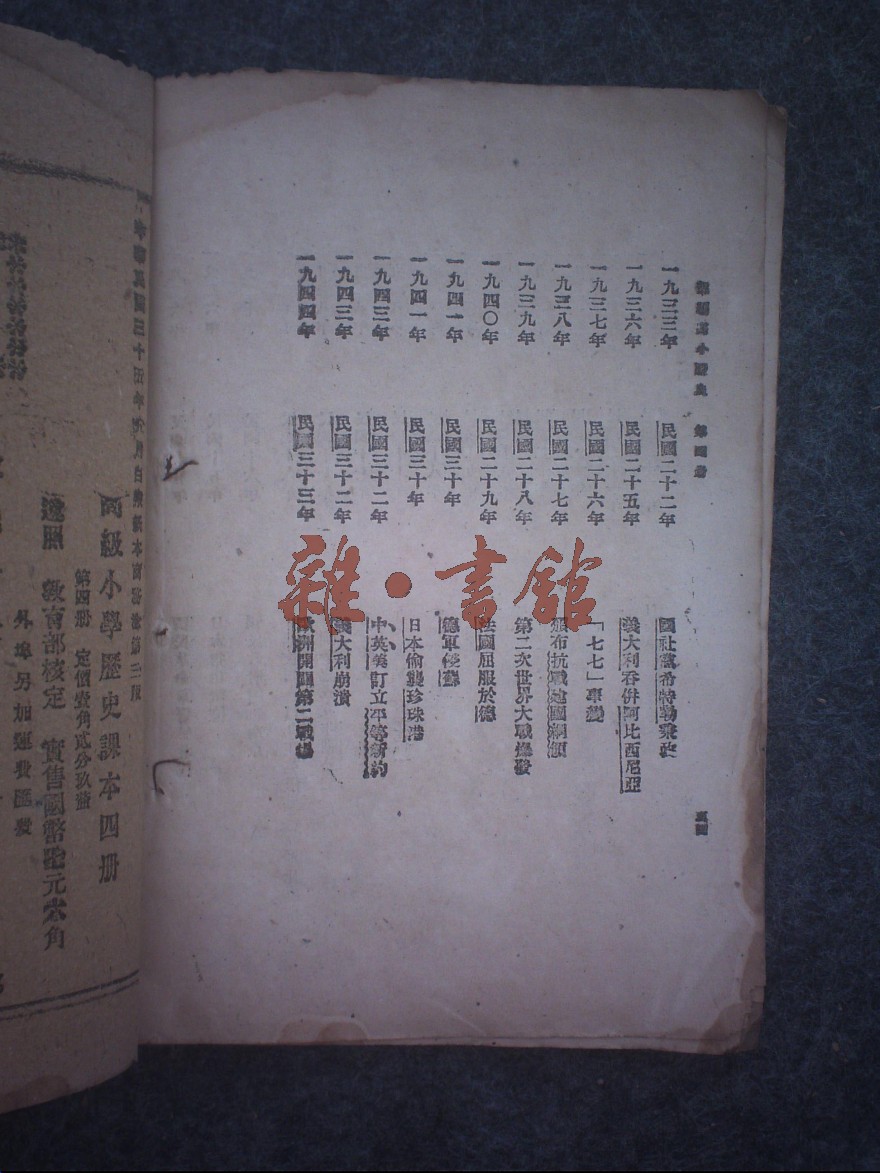 一九三三年 民國二十二年 國社黨希特勒秉政
一九三六年 民國二十五年 義大利吞併阿比西尼亞
一九三七年 民國二十六年 「七七」事變
一九三八年 民國二十七年 頒布抗戰建國綱領
一九三九年 民國二十八年 第二次世界大戰爆發
一九四〇年 民國二十九年 法國屈服於德
一九四一年 民國三十年 德軍侵蘇
一九四一年 民國三十年 日本偷襲珍珠港
一九四三年 民國三十二年 中英美訂立平等新約
一九四三年 民國三十二年 義大利崩潰
一九四四年 民國三十三年 歐洲開闢第二戰場
雜·書館
高級小學歷史課本四册
第四册 定價壹角貳分玖釐
遵照 教育部核定 實售國幣 元六角
外埠另加運費匯費